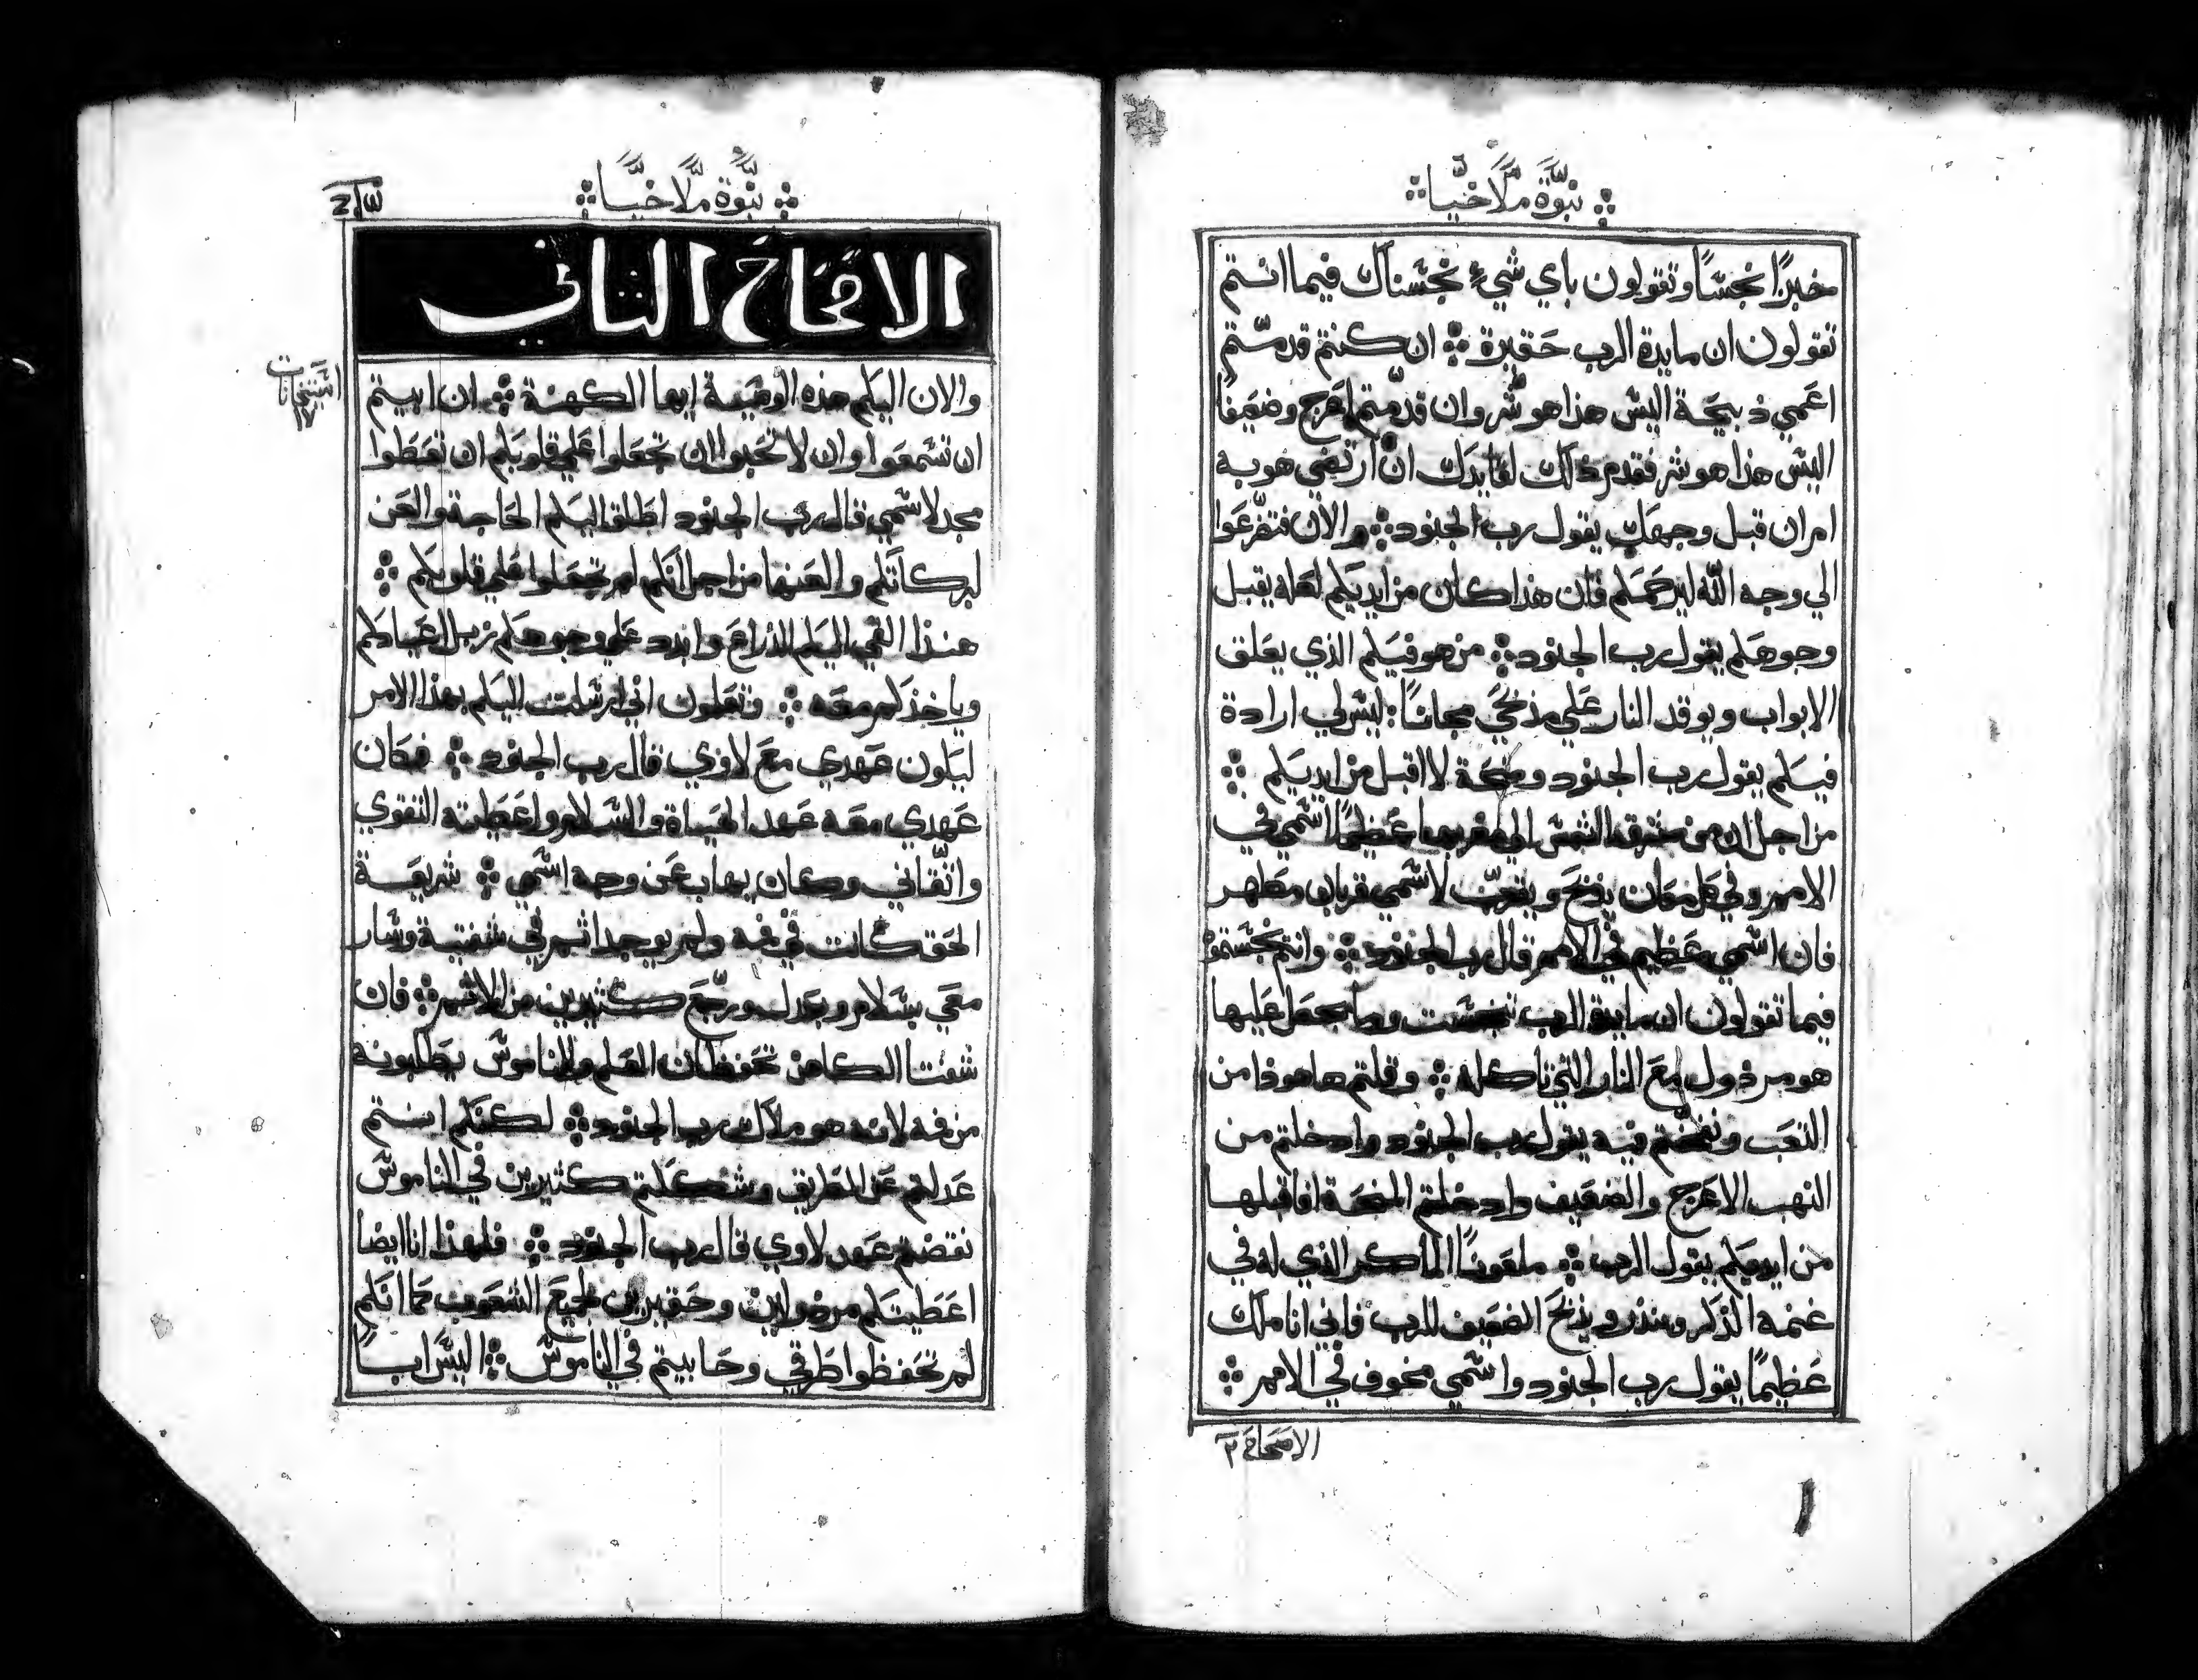 نبوّة ملاخيّا
خبزًا نجسًا وتقولون باي شيءٍ نجسناك فيما انتم
تقولون ان مايدة الرب حقيرة ان كنتم قدمتم
اعمي ذبيحة اليس هذا هو شر وان قدمتم اعرج وضعيفًا
اليس هذا هو شر فقدم ذلك لقايدك ان ارتضي هو به
او ان قبل وجهك يقول رب الجنود والان فتضرعوا
الي وجه الله ليرحمكم فان هذا كان من ايديكم لعله يقبل
وجوهكم يقول رب الجنود من هو فيكم الذي يغلق
الابواب ويوقد النار علي مذبحي مجانًا ليس لي ارادة
فيكم يقول رب الجنود ومنحة لا اقبل من ايديكم
من اجل ان من مشرق الشمس الي مغربها عظيمًا اسمي في
الامم وفي كل مكان يذبح ويقرب لاسمي قربان مطهر
فان اسمي عظيم في الامم قال رب الجنود وانتم نجستموه
فيما تقولون ان مايدة الرب تنجست وما يجعل عليها
هو مرذول مع النار التي تاكله وقلتم ها هوذا من
التعب ونفختم فيه يقول رب الجنود وادخلتم من
النهب الاعرج والضعيف وادخلتم المنحة افاقبلها
من ايديكم يقول الرب ملعونًا الماكر الذي له في
غنمه الذكر وينذر ويذبح الضعيف للرب فاني انا ملك
عظيمًا يقول رب الجنود واسمي مخوف في الامم
الاصحاح ٢
نبوّة ملاخيّا
الاصحاح الثاني
والان اليكم هذه الوصية ايها الكهنة ان ابيتم
ان تسمعوا وان لا تحبوا ان تجعلوا علي قلوبكم ان تعطوا
مجد لاسمي قال رب الجنود اطلق اليكم الحاجة والعن
لبركاتكم والعنها من اجل انكم لم تجعلوا علي قلوبكم
هنذا القي اليكم الذراع وابدد علي وجوهكم زبل اعيادكم
وياخذكم معه وتعلمون اني ارسلت اليكم بهذا الامر
ليكون عهدي مع لاوي قال رب الجنود فكان
عهدي معه عهد الحياة والسلام واعطيته التقوي
واتقاني وكان يهاب عن وجه اسمي شريعة
الحق كانت في فمه ولم يوجد اثم في شفتيه وسار
معي بسلام وبعدل ورجّع كثيرين من الاثم فان
شفتا الكاهن تحفظان العلم والناموس يطلبونه
من فمه لانه هو ملاك رب الجنود لكنكم انتم
عدلتم عن الطريق وشككتم كثيرين في الناموس
نقضتم عهد لاوي قال رب الجنود فلهذا انا ايضا
اعطيتكم مرذولين وحقيرين لجميع الشعوب كما انكم
لم تحفظوا طرقي وحابيتم في الناموس اليس ابًا